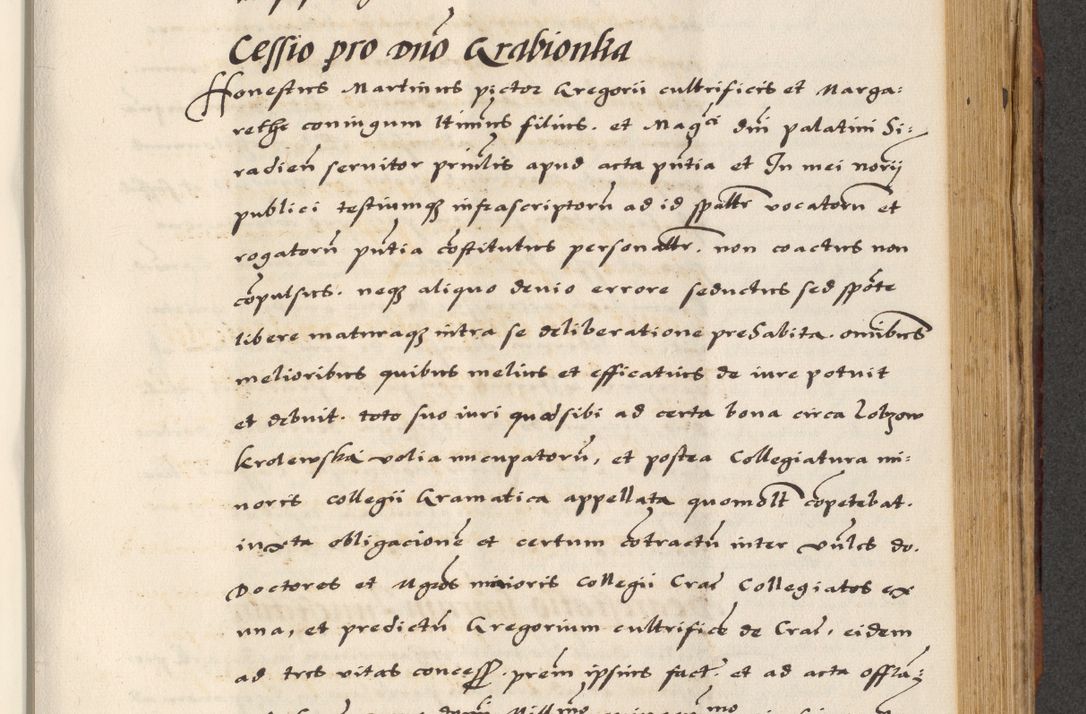 Cessio pro Dnō Grabionka
Honestus Martinus pictor Gregorii cultrificis et Marga:
rethe coniugum ltimus filius. et Magci dni palatini Si:
radien̄ servitor prnlis apud acta pn̄tia et In mei norij
publici testiumq3 infrascriptorū ad id spāltr vocatorū et
rogatorū pn̄tia cōstitutus personaltr. non coactus non
cōpulsus. neq3 aliquo devio errore seductus sed spōte
libere maturaq3 intra se deliberatione prehabita. omībus
melioribus quibus melius et efficatius de iure potuit
et debuit. toto suo iuri quod sibi ad certa bona circa Lobzow
krolewska volia nncupatorū, et postea Collegiatura mi:
noris collegii Gramatica appellata quomōlt cōpetebat.
iuxta obligacionē et certum cōtractū inter vn̄les do.
Doctores et Mgros maioris collegii Cra Collegiatos ex
una, et predictū Gregorium cultrificē de Cra, eidem
ad tres vitas concess. prem ipsius fact. et ad acta offlā: